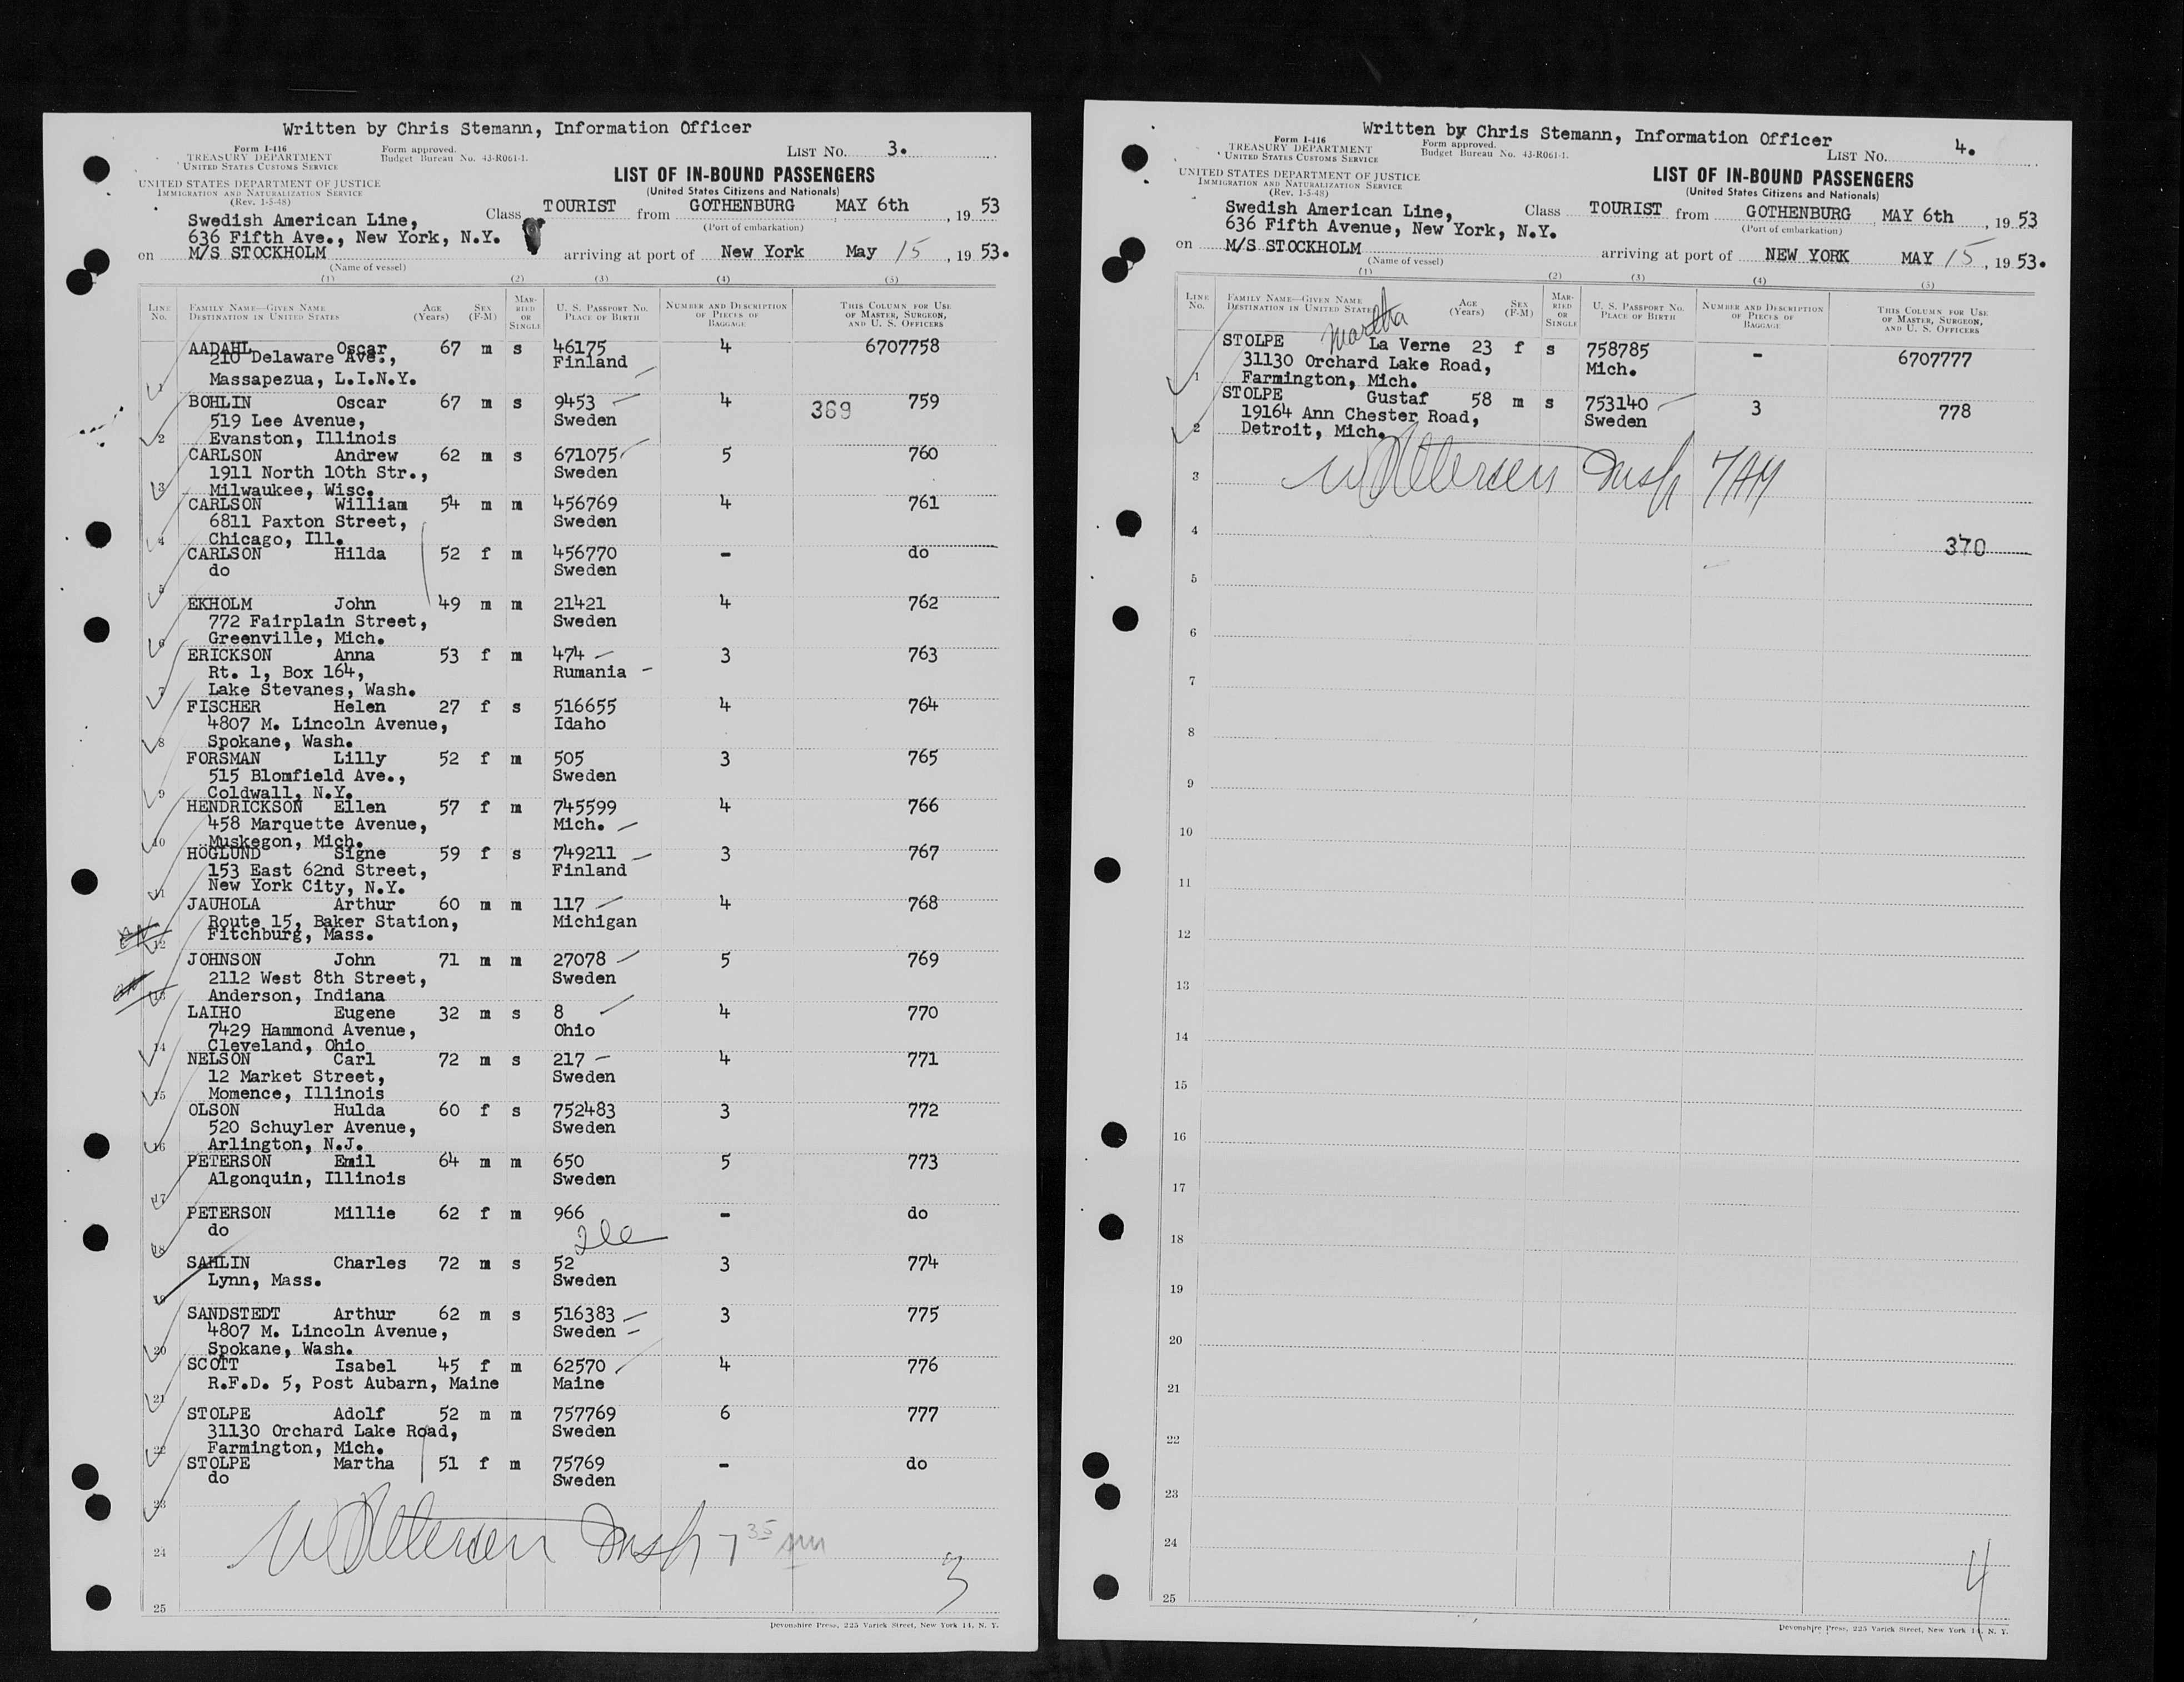 Written by Chris Stemann, Information Officer
Form I-416
TREASURY DEPARTMENT
UNITED STATES CUSTOMS SERVICE
Form approved.
Budget Bureau No. 43-R061-1.
LIST NO. 3.
UNITED STATES DEPARTMENT OF JUSTICE
IMMIGRATION AND NATURALIZATION SERVICE
(Rev. 1-5-48)
LIST OF IN-BOUND PASSENGERS
(United States Citizens and Nationals)
Swedish American Line,
636 Fifth Ave., New York, N.Y.
Class TOURIST from GOTHENBURG MAY 6th, 1953
(Port of embarkation)
on M/S STOCKHOLM arriving at port of New York May 15, 1953.
(Name of vessel)
(1) (2) (3) (4) (5)
LINE No. FAMILY NAME—GIVEN NAME DESTINATION IN UNITED STATES AGE (Years) SEX (F-M) MARRIED OR SINGLE U. S. PASSPORT NO. PLACE OF BIRTH NUMBER AND DESCRIPTION OF PIECES OF BAGGAGE THIS COLUMN FOR USE OF MASTER, SURGEON, AND U. S. OFFICERS
AADAHL Oscar 67 m s 46175 4 6707758
210 Delaware Ave., Finland
1 Massapezua, L.I.N.Y.
BOHLIN Oscar 67 m s 9453 4 369 759
519 Lee Avenue, Sweden
2 Evanston, Illinois
CARLSON Andrew 62 m s 671075 5 760
1911 North 10th Str., Sweden
3 Milwaukee, Wisc.
CARLSON William 54 m m 456769 4 761
6811 Paxton Street, Sweden
4 Chicago, Ill.
CARLSON Hilda 52 f m 456770 - do
do Sweden
5
EKHOLM John 49 m m 21421 4 762
772 Fairplain Street, Sweden
6 Greenville, Mich.
ERICKSON Anna 53 f m 474 3 763
Rt. 1, Box 164, Rumania
7 Lake Stevanes, Wash.
FISCHER Helen 27 f s 516655 4 764
4807 M. Lincoln Avenue, Idaho
8 Spokane, Wash.
FORSMAN Lilly 52 f m 505 3 765
515 Blomfield Ave., Sweden
9 Coldwall, N.Y.
HENDRICKSON Ellen 57 f m 745599 4 766
458 Marquette Avenue, Mich.
10 Muskegon, Mich.
HÖGLUND Signe 59 f s 749211 3 767
153 East 62nd Street, Finland
11 New York City, N.Y.
JAUHOLA Arthur 60 m m 117 4 768
Route 15, Baker Station, Michigan
12 Fitchburg, Mass.
JOHNSON John 71 m m 27078 5 769
2112 West 8th Street, Sweden
13 Anderson, Indiana
LAIHO Eugene 32 m s 8 4 770
7429 Hammond Avenue, Ohio
14 Cleveland, Ohio
NELSON Carl 72 m s 217 4 771
12 Market Street, Sweden
15 Momence, Illinois
OLSON Hulda 60 f s 752483 3 772
520 Schuyler Avenue, Sweden
16 Arlington, N.J.
PETERSON Emil 64 m m 650 5 773
Algonquin, Illinois Sweden
17
PETERSON Millie 62 f m 966 - do
do Ill
18
SAHLIN Charles 72 m s 52 3 774
Lynn, Mass. Sweden
19
SANDSTEDT Arthur 62 m s 516383 3 775
4807 M. Lincoln Avenue, Sweden
20 Spokane, Wash.
SCOTT Isabel 45 f m 62570 4 776
R.F.D. 5, Post Aubarn, Maine Maine
21
STOLPE Adolf 52 m m 757769 6 777
31130 Orchard Lake Road, Sweden
22 Farmington, Mich.
STOLPE Martha 51 f m 75769 - do
do Sweden
23
24 Petersen Insp 7 35 am
3
25
Devonshire Press, 225 Varick Street, New York 14, N. Y.
Written by Chris Stemann, Information Officer
Form I-416
TREASURY DEPARTMENT
UNITED STATES CUSTOMS SERVICE
Form approved.
Budget Bureau No. 43-R061-1.
LIST NO. 4.
UNITED STATES DEPARTMENT OF JUSTICE
IMMIGRATION AND NATURALIZATION SERVICE
(Rev. 1-5-48)
LIST OF IN-BOUND PASSENGERS
(United States Citizens and Nationals)
Swedish American Line,
636 Fifth Avenue, New York, N.Y.
Class TOURIST from GOTHENBURG MAY 6th, 1953
(Port of embarkation)
on M/S STOCKHOLM arriving at port of NEW YORK MAY 15, 1953.
(Name of vessel)
(1) (2) (3) (4) (5)
LINE No. FAMILY NAME—GIVEN NAME DESTINATION IN UNITED STATES AGE (Years) SEX (F-M) MARRIED OR SINGLE U. S. PASSPORT NO. PLACE OF BIRTH NUMBER AND DESCRIPTION OF PIECES OF BAGGAGE THIS COLUMN FOR USE OF MASTER, SURGEON, AND U. S. OFFICERS
Martha
STOLPE La Verne 23 f s 758785 - 6707777
31130 Orchard Lake Road, Mich.
1 Farmington, Mich.
STOLPE Gustaf 58 m s 753140 3 778
19164 Ann Chester Road, Sweden
2 Detroit, Mich.
3 Petersen Insp 7AM
4 370
5
6
7
8
9
10
11
12
13
14
15
16
17
18
19
20
21
22
23
24
4
25
Devonshire Press, 225 Varick Street, New York 14, N. Y.